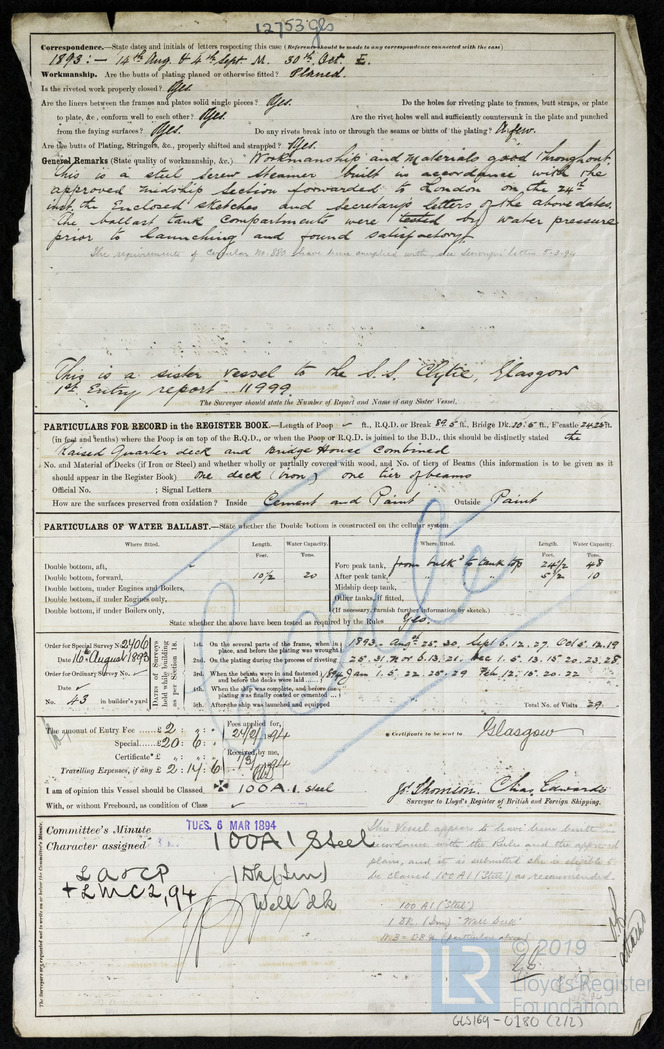 12753 Gls
Correspondence.—State dates and initials of letters respecting this case (Reference should be made to any correspondence connected with the case)
1893:— 14th Aug. & 4th Sept. M. 30th Oct. E.
Workmanship. Are the butts of plating planed or otherwise fitted? Planed.
Is the riveted work properly closed? Yes.
Are the liners between the frames and plates solid single pieces? Yes. Do the holes for riveting plate to frames, butt straps, or plate
to plate, &c., conform well to each other? Yes. Are the rivet holes well and sufficiently countersunk in the plate and punched
from the faying surfaces? Yes. Do any rivets break into or through the seams or butts of the plating? A few.
Are the butts of Plating, Stringers, &c., properly shifted and strapped? Yes.
General Remarks (State quality of workmanship, &c.) Workmanship and materials good throughout.
This is a steel screw steamer built in accordance with the
approved midship section forwarded to London on the 24th
inst. the Enclosed sketches and secretarys letters of the above dates.
The ballast tank compartments were tested by water pressure
prior to launching and found satisfactory.
The requirements of Circular No. 880 have been complied with, see letter 5-3-94
This is a sister vessel to the S.S. Clytie, Glasgow
1st Entry report 11999.
The Surveyor should state the Number of Report and Name of any Sister Vessel.
PARTICULARS FOR RECORD in the REGISTER BOOK.—Length of Poop — ft., R.Q.D. or Break 89.5 ft., Bridge Dk. 10.5 ft., F'castle 24.25 ft.
(in feet and tenths) where the Poop is on top of the R.Q.D., or when the Poop or R.Q.D. is joined to the B.D., this should be distinctly stated the
Raised Quarter deck and Bridge House Combined
No. and Material of Decks (if Iron or Steel) and whether wholly or partially covered with wood, and No. of tiers of Beams (this information is to be given as it
should appear in the Register Book) One deck (iron) one tier of beams
Official No. ; Signal Letters
How are the surfaces preserved from oxidation? Inside Cement and Paint Outside Paint
PARTICULARS OF WATER BALLAST.—State whether the Double bottom is constructed on the cellular system
Where fitted. Length. Water Capacity. Where fitted. Length. Water Capacity.
Feet. Tons. Feet. Tons.
Double bottom, aft, Fore peak tank, from bulkd to tank top 24 1/2 48
Double bottom, forward, 10 1/2 20 After peak tank, " " 5 1/2 10
Double bottom, under Engines and Boilers, Midship deep tank,
Double bottom, if under Engines only, Other tanks, if fitted,
Double bottom, if under Boilers only, (If necessary, furnish further information by sketch.)
State whether the above have been tested as required by the Rules Yes.
Order for Special Survey No. 2406
Date 16th August 1893
Order for Ordinary Survey No.
Date
No. 43 in builder's yard.
Dates of Surveys held while building as per Section 18.
1st. On the several parts of the frame, when in place, and before the plating was wrought 1893. Augst 25. 30. Sept 6. 12. 27. Oct 5. 12. 19
2nd. On the plating during the process of riveting 25. 31. Nov 6. 13. 21. Dec 1. 5. 13. 15. 20. 23. 28.
3rd. When the beams were in and fastened, and before the decks were laid 1894 Jany 1. 5. 22. 25. 29 Feb. 12. 15. 20. 22
4th. When the ship was complete, and before the plating was finally coated or cemented
5th. After the ship was launched and equipped Total No. of Visits 29.
The amount of Entry Fee £ 2 : " : " Fees applied for,
Special £ 20 : 6 : 24/2/1894
Certificate* £ " : " : " Received by me,
Travelling Expenses, if any £ 2 : 14 : 6 7/3/94
* Certificate to be sent to Glasgow
I am of opinion this Vessel should be Classed 100A.1. steel
With, or without Freeboard, as condition of Class
Js. Thomson. Chas. Edwards
Surveyor to Lloyd's Register of British and Foreign Shipping.
Committee's Minute TUES. 6 MAR 1894
Character assigned 100A1 Steel
1 Dk (Irn)
Well dk
L A & C P
+ L M C 2,94
This Vessel appears to have been built in
accordance with the Rules and the approved
plans, and it is submitted she is eligible to
be classed 100A1 (Steel) as recommended.
100 A1 (Steel)
1 Dk. (Irn) "Well Deck"
(particulars above)
The Surveyors are requested not to write on or below the Committee's Minute.
© 2019
LR
Lloyd's Register
Foundation
GLS169-0180 (2/2)